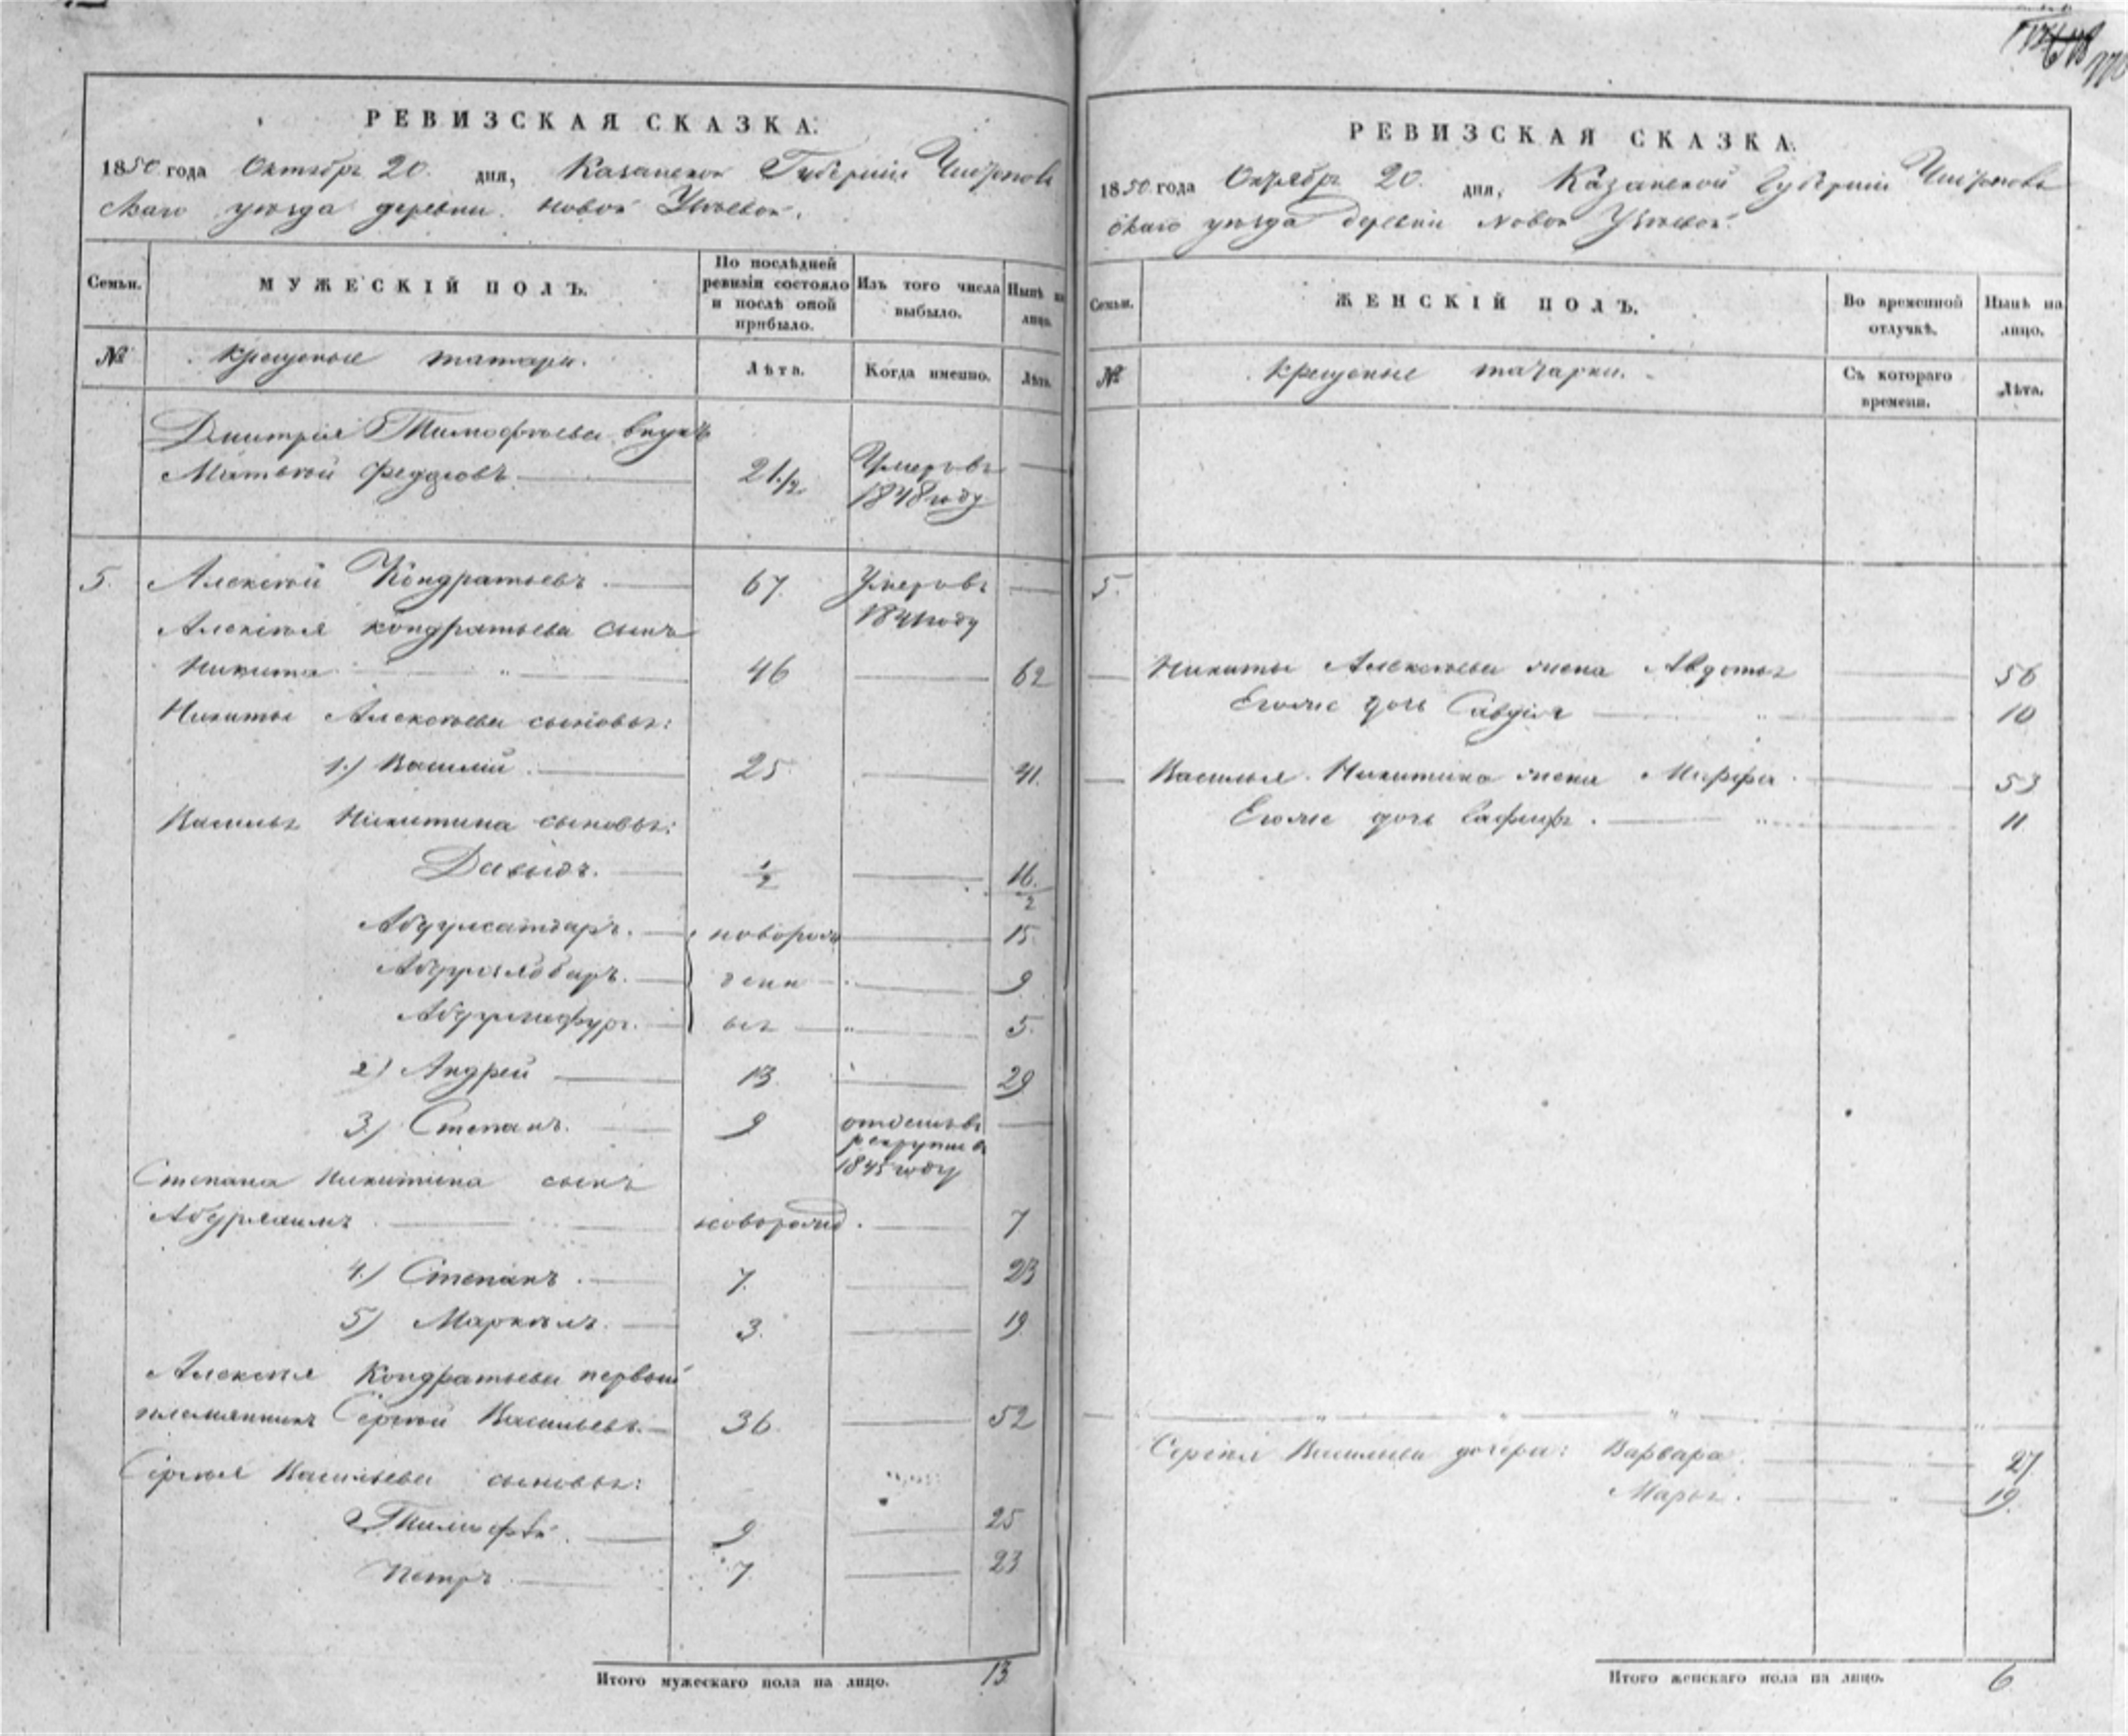 РЕВИЗСКАЯ СКАЗКА.
1850 года Октябр 20. дня, Казанской Губерніи Чистопол
скаго уѣзда деревни Новой
Семьи.
МУЖЕСКІЙ ПОЛЪ.
По послѣдней ревизіи состояло и послѣ оной прибыло.
Изъ того числа выбыло.
Нынѣ на лицо.
№
крещеные татары.
Лѣта.
Когда именно.
Лѣта.
Дмитрія Тимофѣева внукъ
Матвѣй Федоровъ 2 1/2 Умеръ въ
1848 году
5. Алексѣй Кондратьевъ 67. Умеръ въ
1841 году
Алексѣя Кондратьева сынъ
Никита 46 62
Никиты Алексѣева сыновья:
1.) Василій 25 41.
Василья Никитина сыновья:
Давыдъ. 1/2 16 1/2
Абдулсатдаръ. новорож 15.
Абдулзябаръ. денн 9
Абдулгафуръ. ыя 5.
2) Андрей 13. 29
3.) Степанъ. 9 отданъ въ
рекруты в
1845 году
Степана Никитина сынъ
новорожд. 7
4.) Степанъ. 7. 23
5) Маркелъ. 3. 19
Алексѣя Кондратьева первый
племянникъ Сергѣй Васильевъ. 36 52
Сергѣя Васильева сыновья:
Тимофѣй. 9 25
Петръ 7. 23
Итого мужескаго пола на лицо. 13
РЕВИЗСКАЯ СКАЗКА.
1850 года Октябр 20. дня, Казанской Губерніи Чистопол
скаго уѣзда деревни Новой
Семьи.
ЖЕНСКІЙ ПОЛЪ.
Во временной отлучкѣ.
Нынѣ на лицо.
№
крещеные татарки.
Съ котораго времени.
Лѣта.
5.
Никиты Алексѣева жена Авдотья 56
Егоже дочь Савдія 10
Василья Никитина жена Марфа 53
Егоже дочь 11
Сергѣя Васильева дочери: Варвара 27
Марья. 19.
Итого женскаго пола на лицо. 6